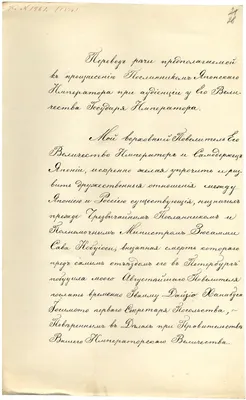 Переводъ речи предполагаемой
къ произнесенію Посланникомъ Японскаго
Императора при аудіенціи у Его Вели-
чества Государя Императора.
Мой верховный Повелитель Его
Величество Императоръ и Самодержецъ
Японіи, искренно желая упрочить и раз-
вить дружественныя отношенія между
Японіею и Россіею существующія, назначилъ
прежде Чрезвычайнымъ Посланникомъ и
Полномочнымъ Министромъ
Сава внезапная смерть котораго
предъ самымъ отъѣздомъ его въ Петербургъ
побудила моего Августѣйшаго Повелителя
послать временно Ханабуса
Іосимото перваго Секретаря Посольства, —
Повереннымъ въ Дѣлахъ при Правительствѣ
Вашего Императорскаго Величества.